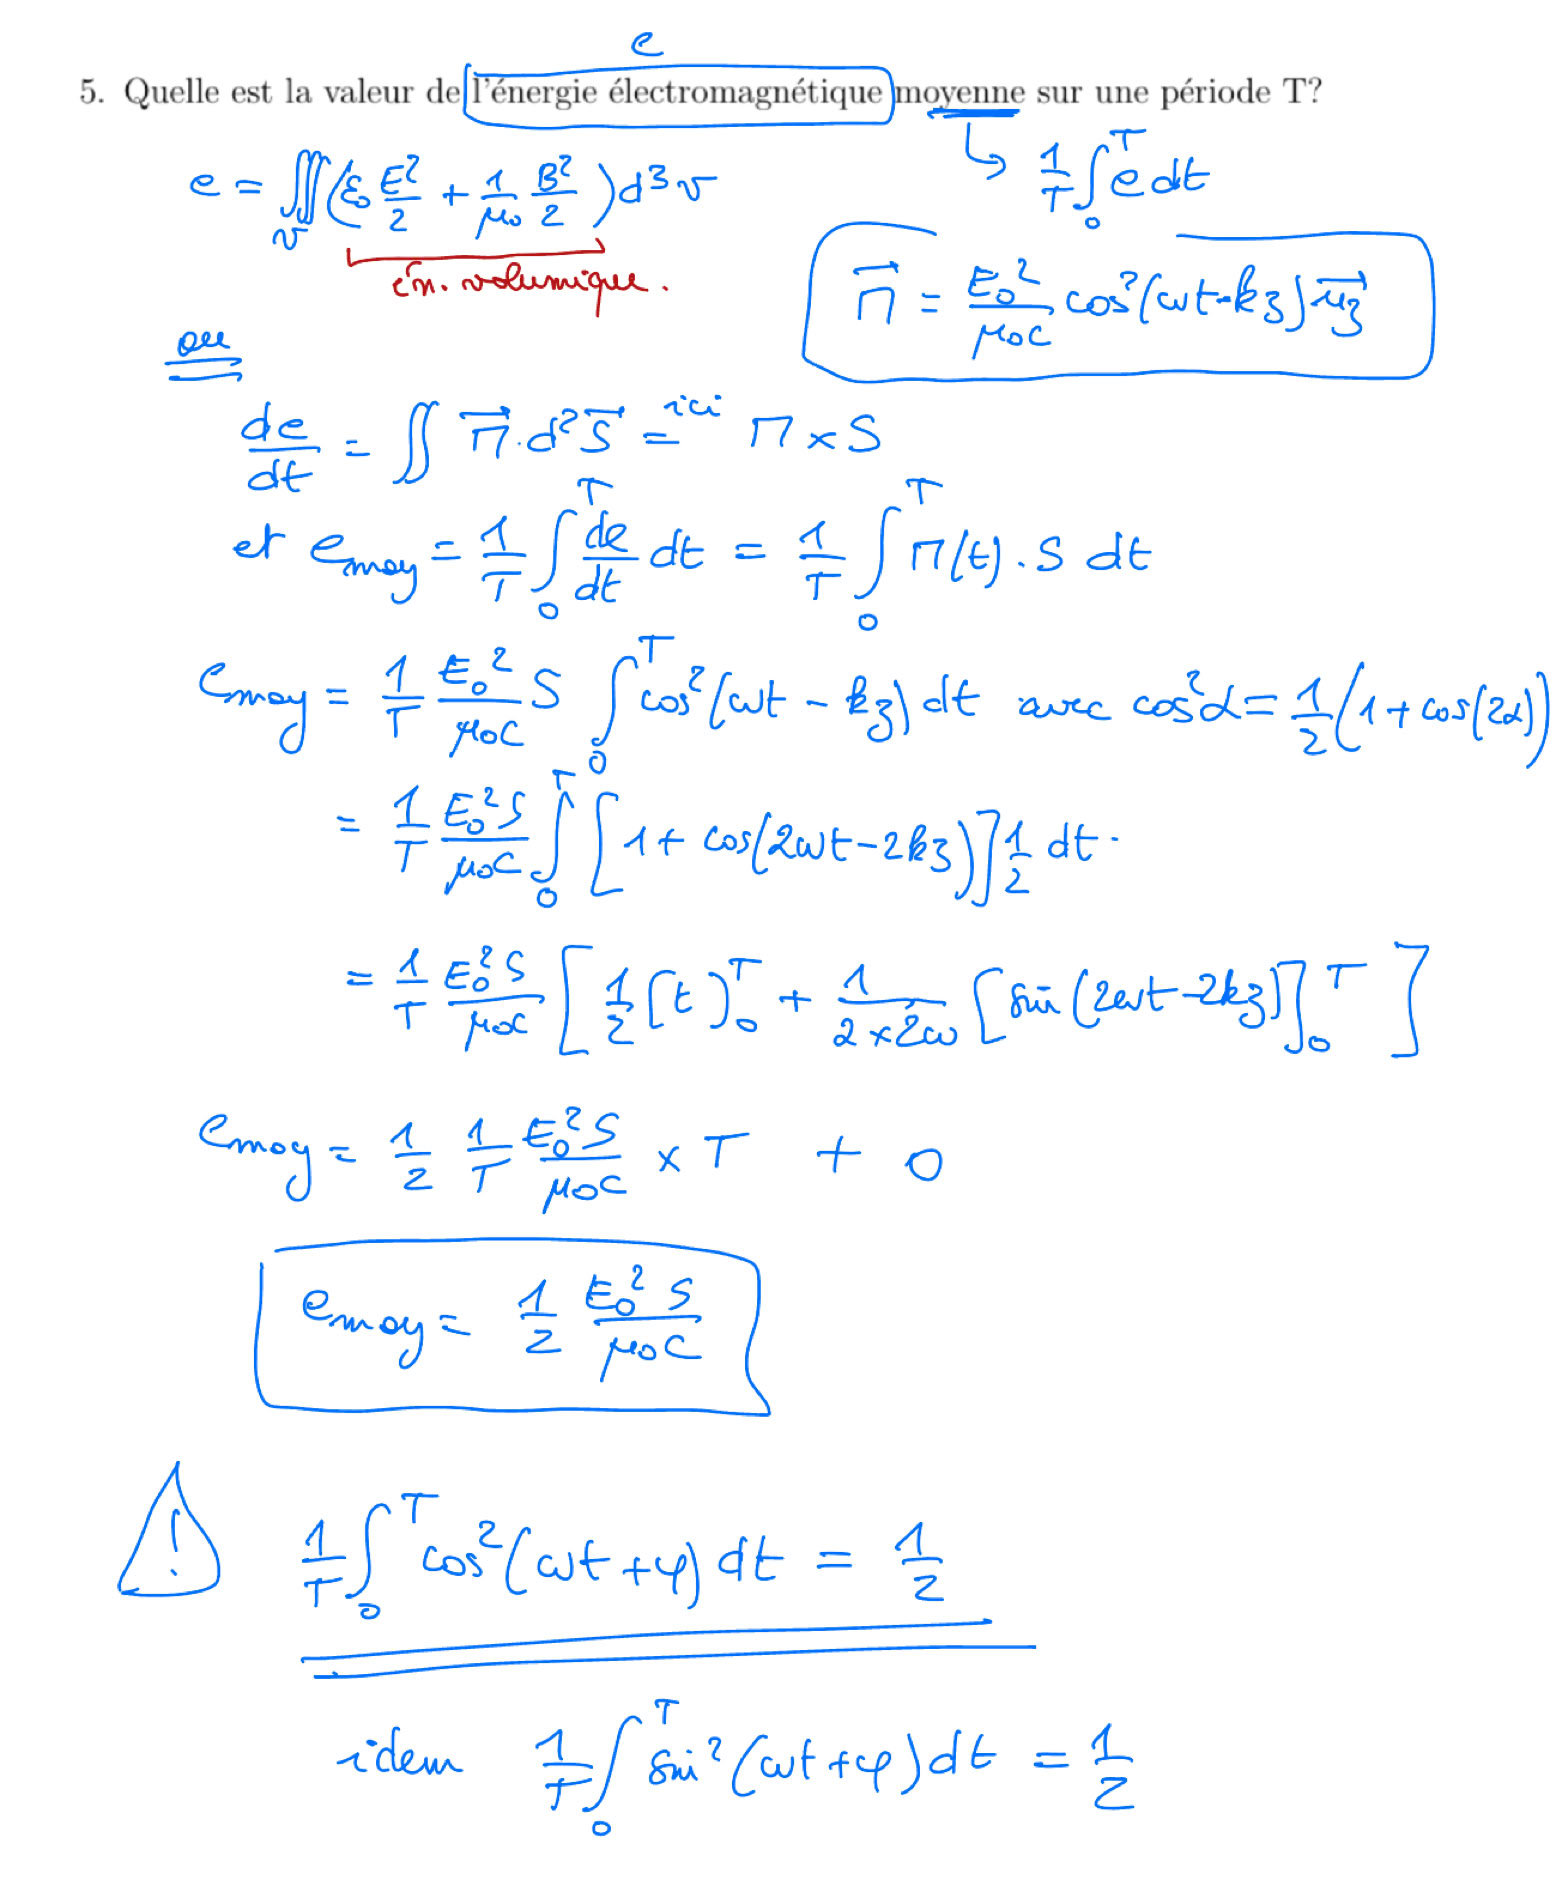 e
5. Quelle est la valeur de l'énergie électromagnétique moyenne sur une période T?
e = ∭_v (ε₀ E²/2 + 1/μ₀ B²/2) d³v
↳ 1/T ∫₀ᵀ e dt
én. volumique.
Π⃗ = E₀²/(μ₀c) cos²(ωt-kz) u⃗z
ou
de/dt = ∬ Π⃗.d²S⃗ =ici Π × S
et emoy = 1/T ∫₀ᵀ de/dt dt = 1/T ∫₀ᵀ Π(t).S dt
emoy = 1/T E₀²/(μ₀c) S ∫₀ᵀ cos²(ωt - kz) dt avec cos²α = 1/2 (1 + cos(2α))
= 1/T E₀²S/(μ₀c) ∫₀ᵀ [1 + cos(2ωt-2kz)] 1/2 dt.
= 1/T E₀²S/(μ₀c) [1/2 [t]₀ᵀ + 1/(2×2ω) [sin(2ωt-2kz)]₀ᵀ]
emoy = 1/2 1/T E₀²S/(μ₀c) × T + 0
emoy = 1/2 E₀²S/(μ₀c)
! 1/T ∫₀ᵀ cos²(ωt+φ) dt = 1/2
idem 1/T ∫₀ᵀ sin²(ωt+φ) dt = 1/2